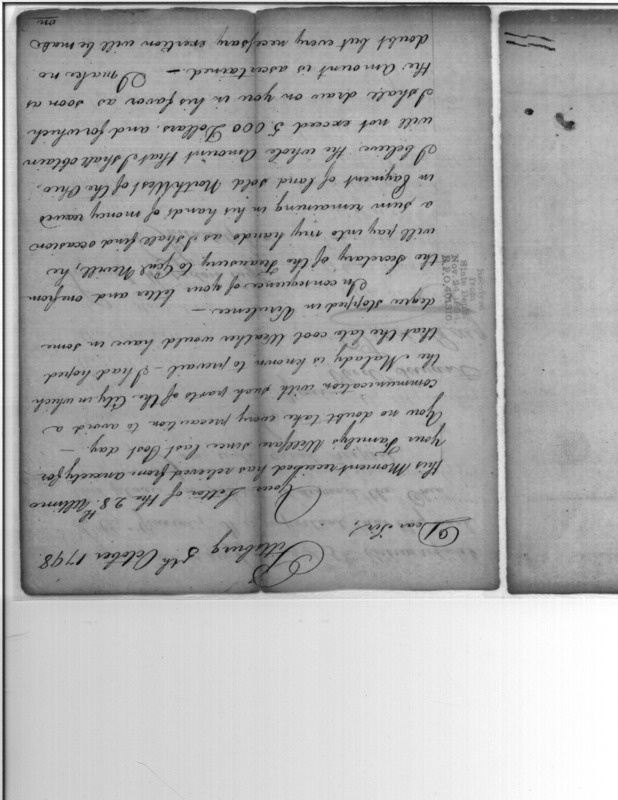 Pittsburg 5th October 1798.
Dear Sir,
Your Letter of the 28th Ultimo
this Moment received has relieved from anxiety for
your Family's Wellfare since last Post day. —
You no doubt take every precaution to avoid a
communication with such parts of the City in which
the Malady is known to prevail — I had hoped
that the late cool Weather would have in some
degree stopped in Virulence. —
In consequence of your letter and one from
the Secretary of the Treasury to Genl Nevill, he
will pay into my hands as I shall find occasion
a sum remaining in his hands of money received
in Payment of land sold North West of the Ohio.
I believe the whole Amount that I shall obtain
will not exceed 5.000 Dollars and for which
I shall draw on you in his favor as soon as
the Amount is ascertained. — I make no
doubt but every necessary exertion will be made
on